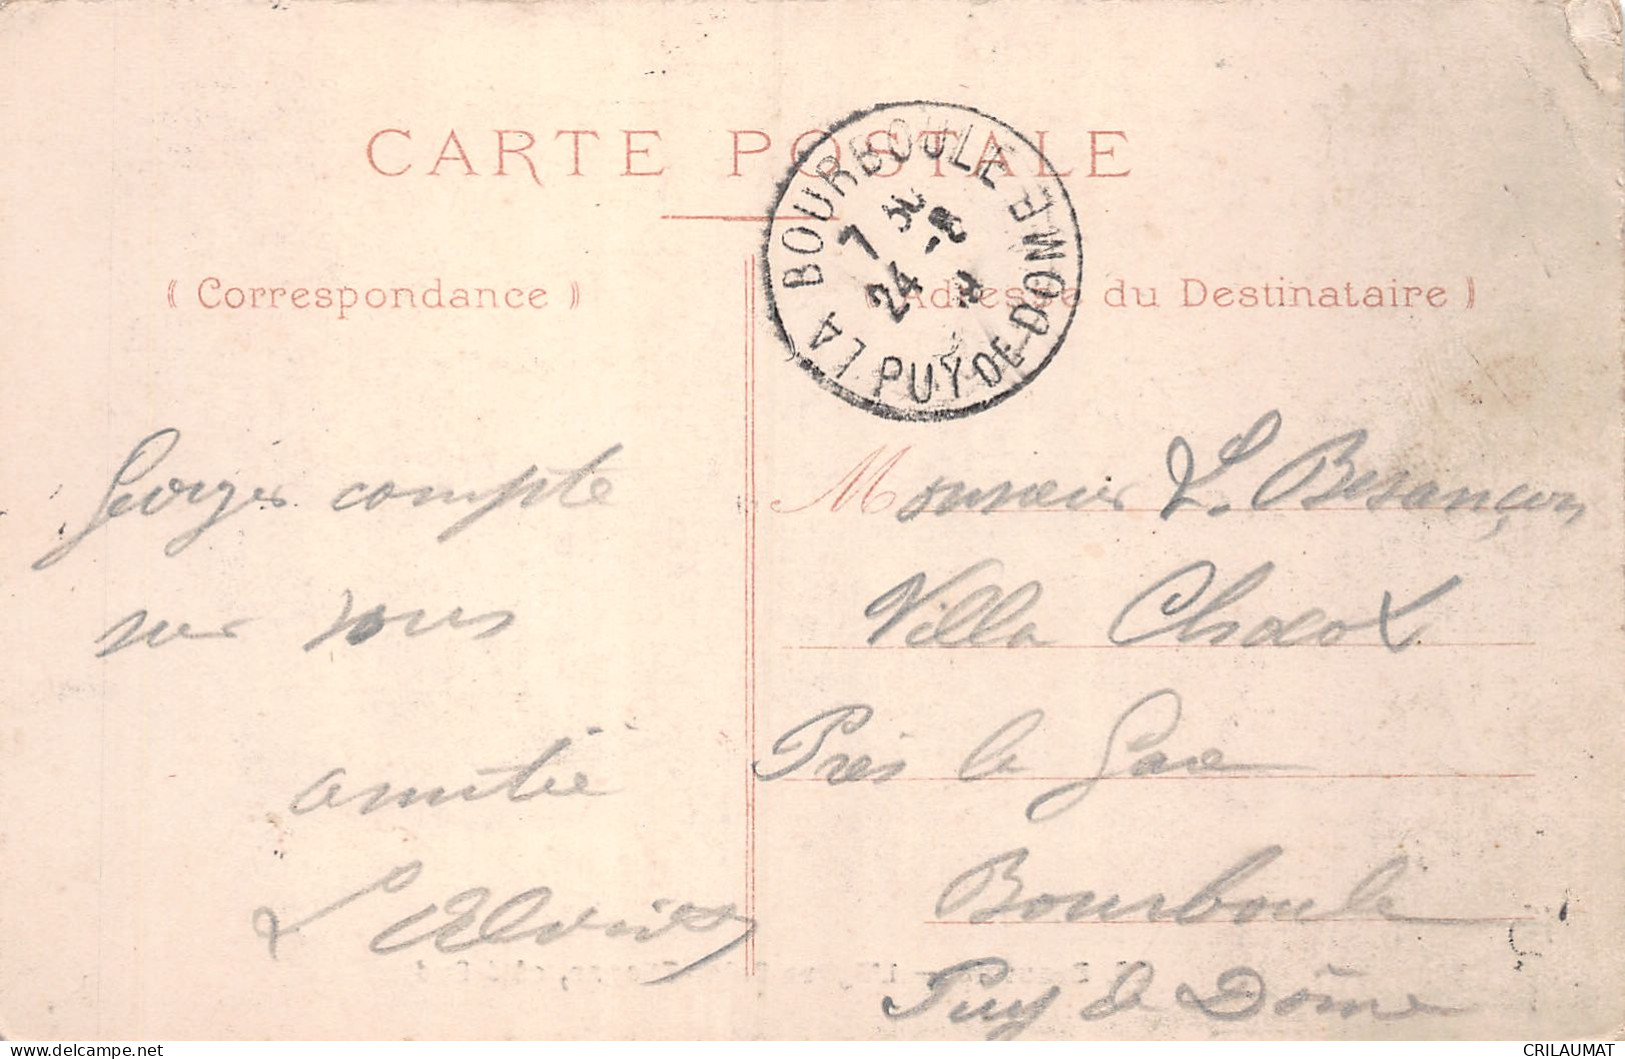 CARTE POSTALE
LA BOURBOULE
PUY-DE-DOME
7 30
24 -8
« Correspondance »
Adresse du Destinataire »
Georges compte
sur vous
amitié
Monsieur L. Besançon
Villa
Près la Gare
Bourboule
Puy de Dôme
CRILAUMAT